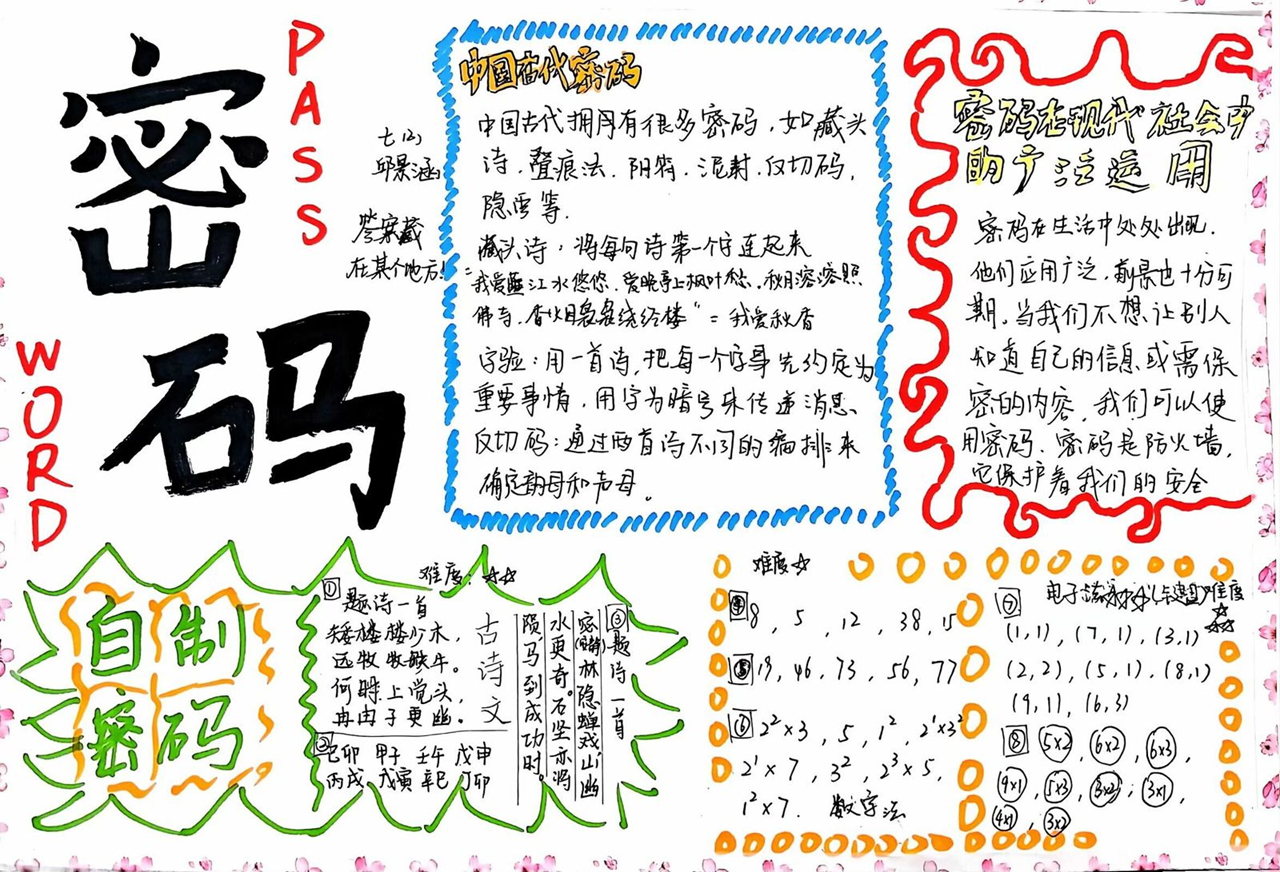 密码
PASS
WORD
七(2)
邱景涵
答案藏
在某个地方!
中国古代密码
中国古代拥有很多密码,如藏头
诗、叠痕法、阴符、泥封、反切码,
隐语等.
藏头诗:将每句诗第一个字连起来
"我爱 江水悠悠、爱晚亭上枫叶愁、秋月溶溶照
佛寺、香烟袅袅绕经楼"=我爱秋香
字验:用一首诗,把每一个字事先约定为
重要事情,用字为暗号来传递消息、
反切码:通过两首诗不同的编排来
确定韵母和声母。
密码在现代社会中
的广泛运用
密码在生活中处处出现.
他们应用广泛,前景也十分可
期.当我们不想让别人
知道自己的信息或需保
密的内容,我们可以使
用密码.密码是防火墙,
它保护着我们的安全
自制
密码
难度:☆☆
①
题诗一首
矮楼楼少木,
远牧牧缺牛。
何时上觉头,
再由子更幽。
古诗文
②
己卯 甲子 壬午 戊申
丙戌 戊寅 辛巳 丁卯
③题诗一首
密林隐蝉戏山幽
水更奇。石坚亦将
陨,马到成功时。
难度☆
④8, 5, 12, 38, 15
⑤19, 46, 73, 56, 77
⑥2²×3, 5, 1², 2¹×3²
2¹×7, 3², 2³×5,
1²×7 数字法
⑦ 电子 (键盘)难度
☆☆☆
(1,1), (7,1), (3,1)
(2,2), (5,1), (8,1)
(9,1), (6,3)
⑧ 5×2, 6×2, 6×3,
9×1, 5×3, 3×2, 3×1,
4×1, 3×2